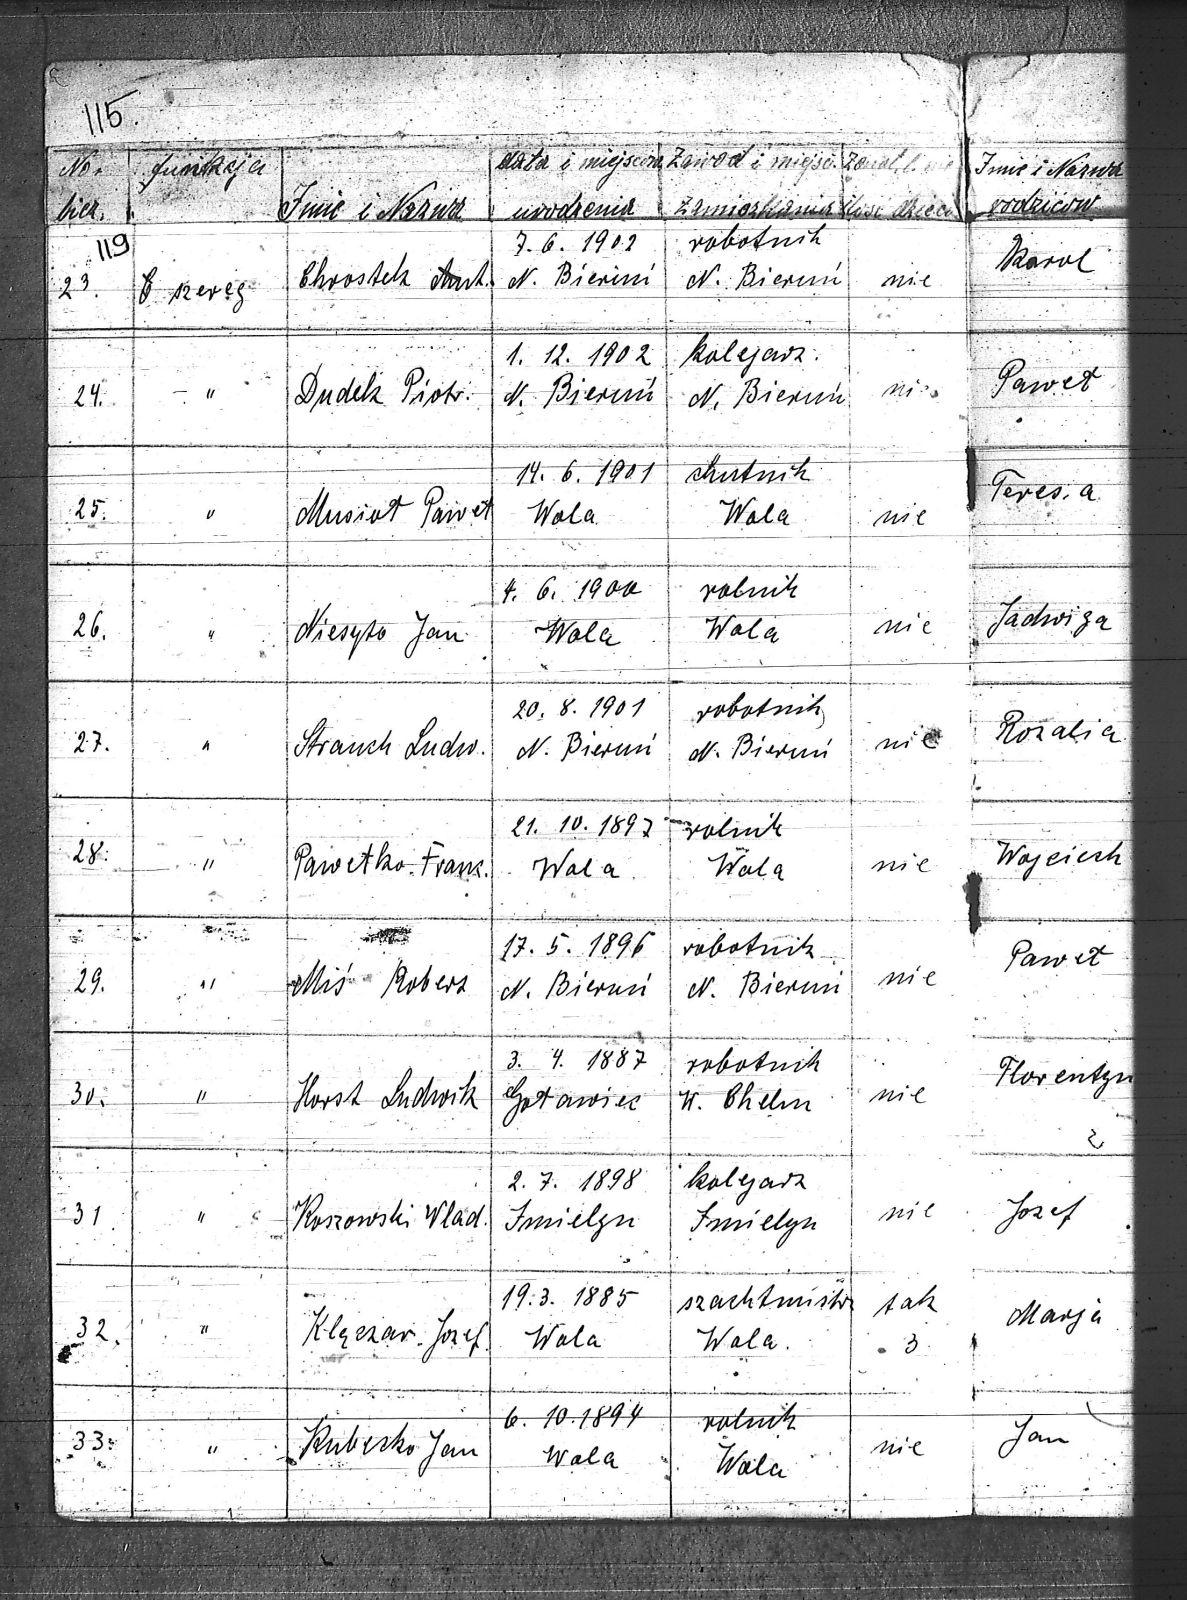 115.
No. funkcja data i miejscow Zawod i miejsc. Imie i Nazwa
licz. Imie i Nazwa urodzenia Zamieszkania ilosc dzieci rodziców
119 7. 6. 1902 robotnik Karol
23. szereg Chrostek N. Bieruń N. Bieruń nie
1. 12. 1902 kolejarz. Paweł
24. — " Dudek Piotr. N. Bieruń N. Bieruń nie
14. 6. 1901 chutnik Teresia
25. " Musioł Paweł Wola Wola nie
4. 6. 1900 rolnik Jadwiga
26. " Niesyto Jan Wola Wola nie
20. 8. 1901 robotnik Rozalia
27. " Strauch Ludw. N. Bieruń N. Bieruń nie
21. 10. 1897 rolnik Wojciech
28. " Pawełko Franc. Wola Wola nie
17. 5. 1896 robotnik Paweł
29. " Miś Robert N. Bieruń N. Bieruń nie
3. 4. 1887 robotnik Florentyn
30. " Horst Ludwik Goławiec W. Chelm nie
2. 7. 1898 kolejarz Jozef
31 " Koszowski Wlad. Imielyn Imielyn nie
19. 3. 1885 szachtmistrz tak Marja
32. " Klęczar Jozef. Wola Wola. 3
6. 10. 1894 rolnik Jan
33. " Kubeczko Jan Wola Wola nie